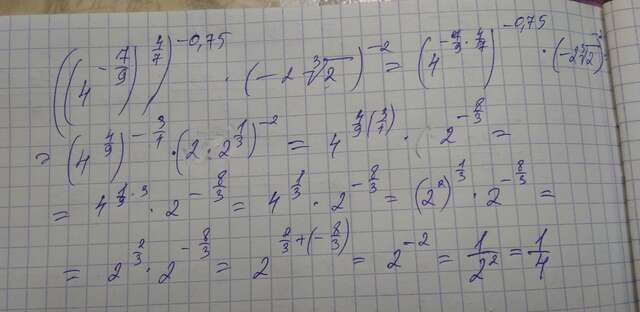 ((4^{-\frac{7}{9}})^{\frac{4}{7}})^{-0,75} · (-2\sqrt[3]{2})^{-2} = (4^{-\frac{7}{9}·\frac{4}{7}})^{-0,75} · (-2\sqrt[3]{2})^{-2}
= (4^{\frac{4}{9}})^{-\frac{3}{4}} · (2·2^{\frac{1}{3}})^{-2} = 4^{\frac{4}{9}(\frac{3}{4})} · 2^{-\frac{8}{3}} =
= 4^{\frac{1}{9}·3} · 2^{-\frac{8}{3}} = 4^{\frac{1}{3}} · 2^{-\frac{8}{3}} = (2^2)^{\frac{1}{3}} · 2^{-\frac{8}{3}} =
= 2^{\frac{2}{3}} · 2^{-\frac{8}{3}} = 2^{\frac{2}{3}+(-\frac{8}{3})} = 2^{-2} = \frac{1}{2^2} = \frac{1}{4}